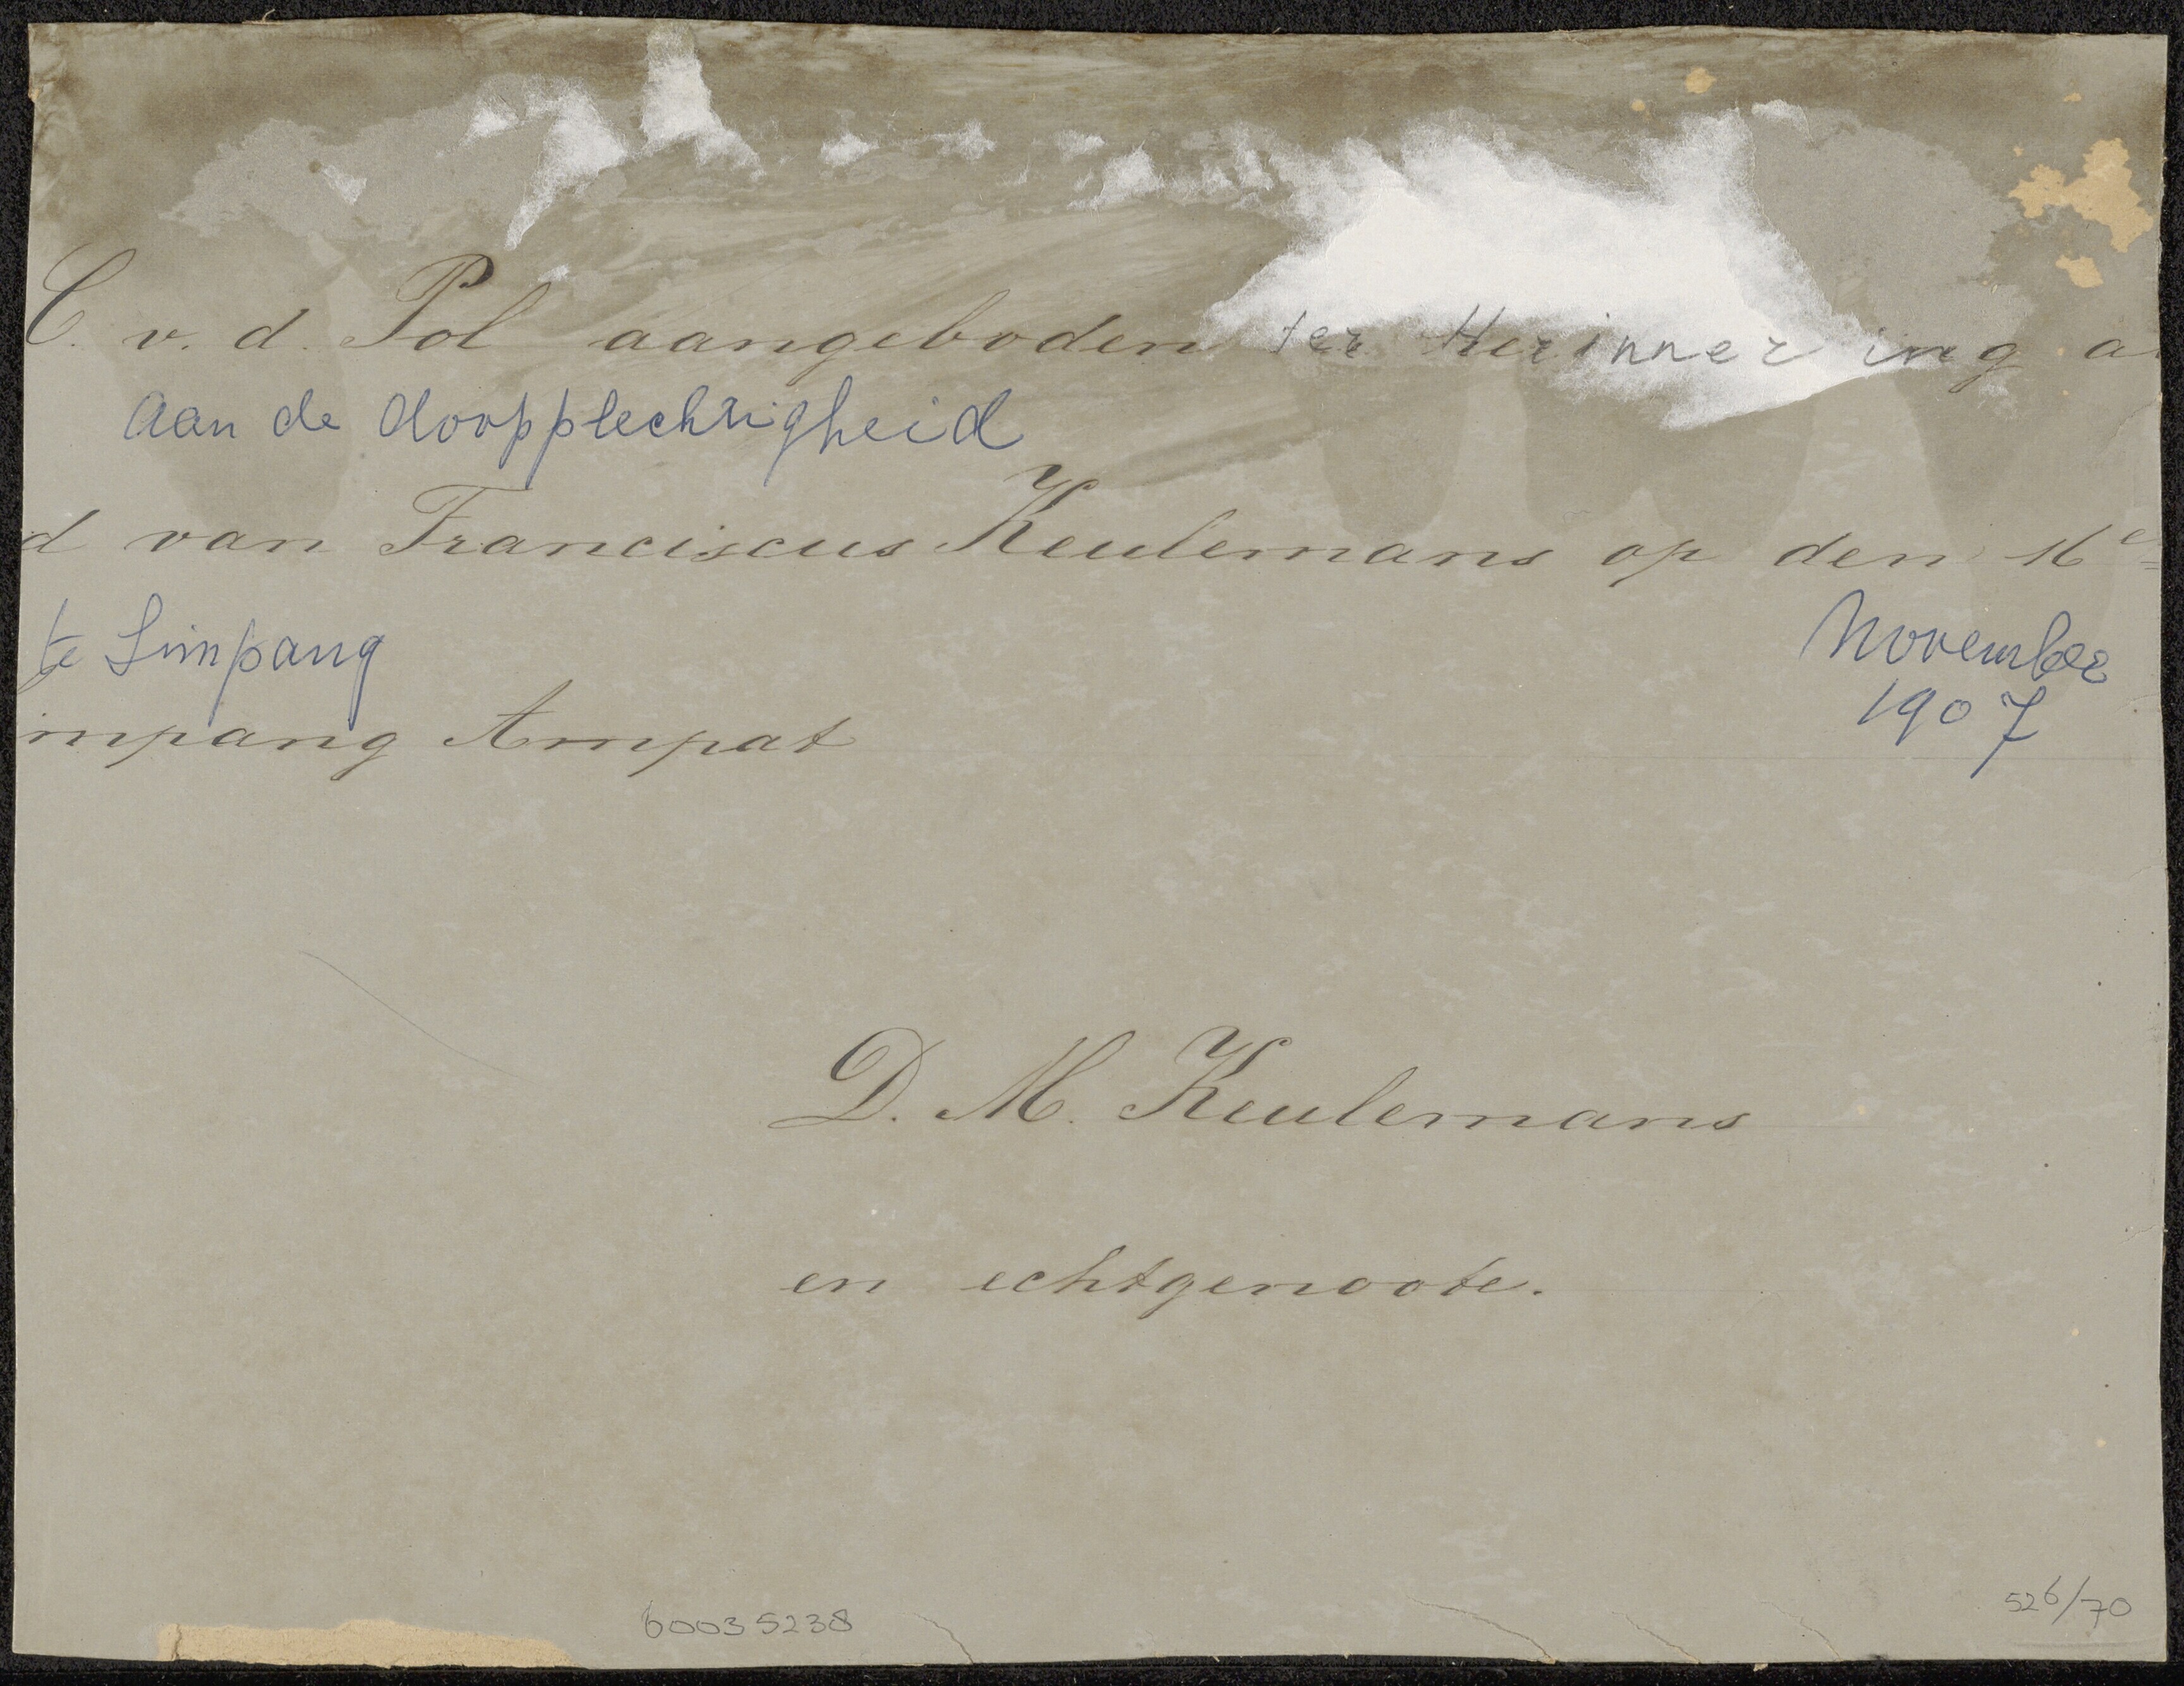 C. v. d. Pol aangeboden ter Herinnering a
aan de doopplechtigheid
d van Franciscus Keulemans op den 16e
te Simpang
November
1907
impang Ampat
D. M. Keulemans
en echtgenoote.
60035238
526/70